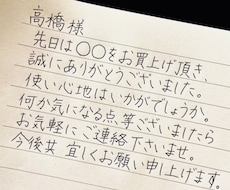 高橋様
先日は〇〇をお買上げ頂き、
誠にありがとうございました。
使い心地はいかがでしょうか。
何か気になる点、等ございましたら
お気軽にご連絡下さいませ。
今後共 宜しくお願い申し上げます。